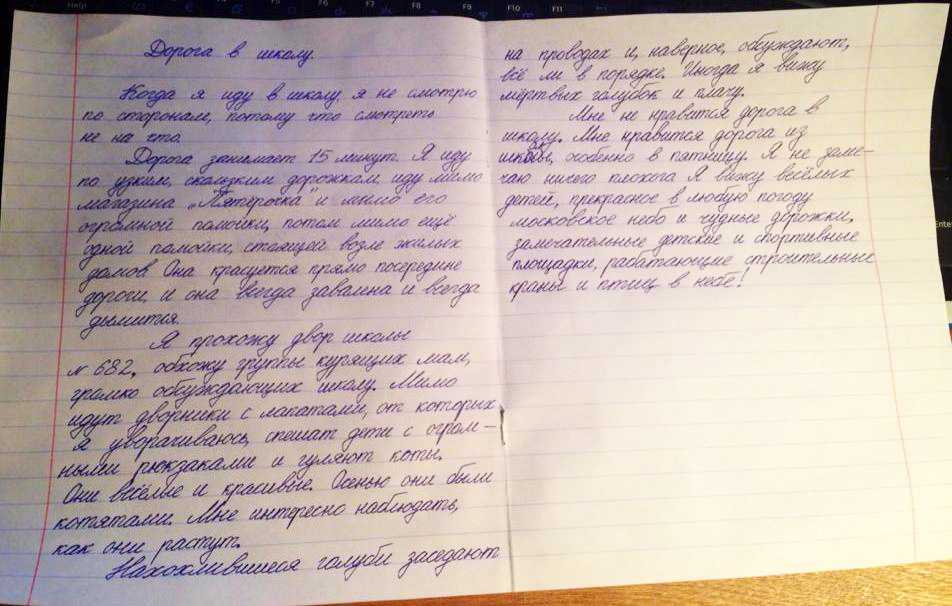 Дорога в школу.
Когда я иду в школу, я не смотрю
по сторонам, потому что смотреть
не на что.
Дорога занимает 15 минут. Я иду
по узким, скользким дорожкам, иду мимо
магазина „Пятёрочка" и мимо его
огромной помойки, потом мимо ещё
одной помойки, стоящей возле жилых
домов. Она красуется прямо посередине
дороги, и она всегда завалена и всегда
дымится.
Я прохожу двор школы
№ 682, обхожу группы курящих мам,
громко обсуждающих школу. Мимо
идут дворники с лапатами, от которых
я уворачиваюсь, спешат дети с огром-
ными рюкзаками и гуляют коты.
Они весёлые и красивые. Осенью они были
котятами. Мне интересно наблюдать,
как они растут.
Нахохлившиеся голуби заседают
на проводах и, наверное, обсуждают,
всё ли в порядке. Иногда я вижу
мёртвых голубок и плачу.
Мне не нравится дорога в
школу. Мне нравится дорога из
школы, особенно в пятницу. Я не заме-
чаю ничего плохого. Я вижу весёлых
детей, прекрасное в любую погоду
московское небо и чудные дорожки,
замечательные детские и спортивные
площадки, работающие строительных
краны и птиц в небе!
Help
F6
F7
F8
F9
F10
F11
Enter